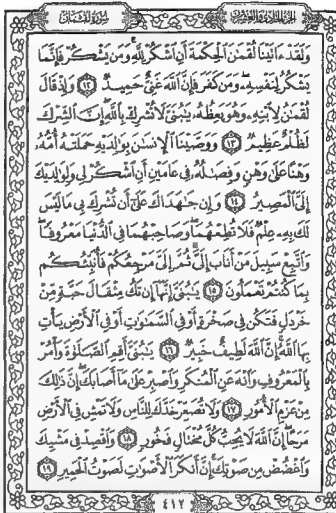 سُورَةُ لُقْمَانَ الجُزْءُ الحَادِي وَالعِشْرُونَ
وَلَقَدْ ءَاتَيْنَا لُقْمَٰنَ ٱلْحِكْمَةَ أَنِ ٱشْكُرْ لِلَّهِ وَمَن يَشْكُرْ فَإِنَّمَا
يَشْكُرُ لِنَفْسِهِۦ وَمَن كَفَرَ فَإِنَّ ٱللَّهَ غَنِىٌّ حَمِيدٌ ١٢ وَإِذْ قَالَ
لُقْمَٰنُ لِٱبْنِهِۦ وَهُوَ يَعِظُهُۥ يَٰبُنَىَّ لَا تُشْرِكْ بِٱللَّهِ إِنَّ ٱلشِّرْكَ
لَظُلْمٌ عَظِيمٌ ١٣ وَوَصَّيْنَا ٱلْإِنسَٰنَ بِوَٰلِدَيْهِ حَمَلَتْهُ أُمُّهُۥ
وَهْنًا عَلَىٰ وَهْنٍ وَفِصَٰلُهُۥ فِى عَامَيْنِ أَنِ ٱشْكُرْ لِى وَلِوَٰلِدَيْكَ
إِلَىَّ ٱلْمَصِيرُ ١٤ وَإِن جَٰهَدَاكَ عَلَىٰٓ أَن تُشْرِكَ بِى مَا لَيْسَ
لَكَ بِهِۦ عِلْمٌ فَلَا تُطِعْهُمَا وَصَاحِبْهُمَا فِى ٱلدُّنْيَا مَعْرُوفًا
وَٱتَّبِعْ سَبِيلَ مَنْ أَنَابَ إِلَىَّ ثُمَّ إِلَىَّ مَرْجِعُكُمْ فَأُنَبِّئُكُم
بِمَا كُنتُمْ تَعْمَلُونَ ١٥ يَٰبُنَىَّ إِنَّهَآ إِن تَكُ مِثْقَالَ حَبَّةٍ مِّنْ
خَرْدَلٍ فَتَكُن فِى صَخْرَةٍ أَوْ فِى ٱلسَّمَٰوَٰتِ أَوْ فِى ٱلْأَرْضِ يَأْتِ
بِهَا ٱللَّهُ إِنَّ ٱللَّهَ لَطِيفٌ خَبِيرٌ ١٦ يَٰبُنَىَّ أَقِمِ ٱلصَّلَوٰةَ وَأْمُرْ
بِٱلْمَعْرُوفِ وَٱنْهَ عَنِ ٱلْمُنكَرِ وَٱصْبِرْ عَلَىٰ مَآ أَصَابَكَ إِنَّ ذَٰلِكَ
مِنْ عَزْمِ ٱلْأُمُورِ ١٧ وَلَا تُصَعِّرْ خَدَّكَ لِلنَّاسِ وَلَا تَمْشِ فِى ٱلْأَرْضِ
مَرَحًا إِنَّ ٱللَّهَ لَا يُحِبُّ كُلَّ مُخْتَالٍ فَخُورٍ ١٨ وَٱقْصِدْ فِى مَشْيِكَ
وَٱغْضُضْ مِن صَوْتِكَ إِنَّ أَنكَرَ ٱلْأَصْوَٰتِ لَصَوْتُ ٱلْحَمِيرِ ١٩
٤١٢